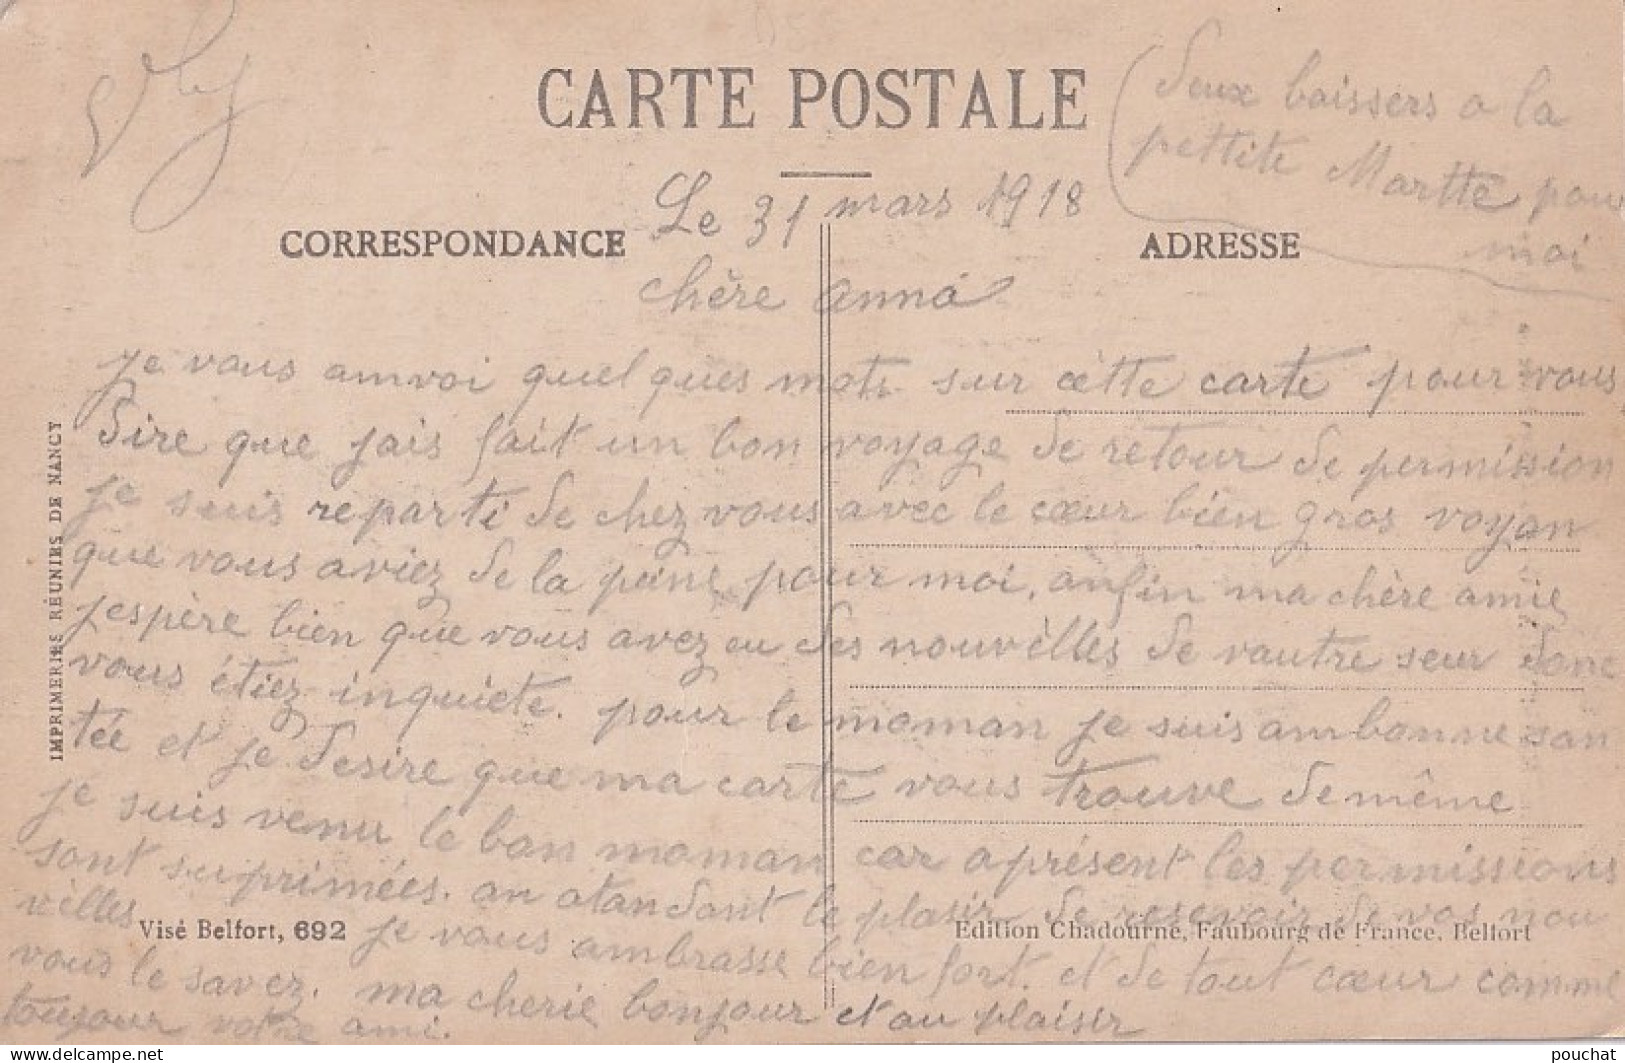 CARTE POSTALE
deux baissers a la
pettite Martte pour
moi
Le 31 mars 1918
CORRESPONDANCE
ADRESSE
chère anna
je vous amvoi quelques mots sur cètte carte pour vous
dire que jais fait un bon voyage de retour de permission
je suis reparti de chez vous avec le cœur bien gros voyan
que vous aviez de la peine pour moi. anfin ma chère amie
jespère bien que vous avez eu des nouvèlles de vautre seur donc
vous étiez inquiete. pour le moman je suis ambonne san
tée et je desire que ma carte vous trouve de même
je suis venu le bon moman car aprésent les permissions
sont suprimées. an atandant le plasir de resevoir de vos nou
villes je vous ambrasse bien fort. et de tout cœur comme
Visé Belfort, 692
Edition Chadourne, Faubourg de France, Belfort
vous le savez. ma cherie bonjour et au plaisir
toujour votre ami.
IMPRIMERIES RÉUNIES DE NANCY
pouchat
delcampe.net